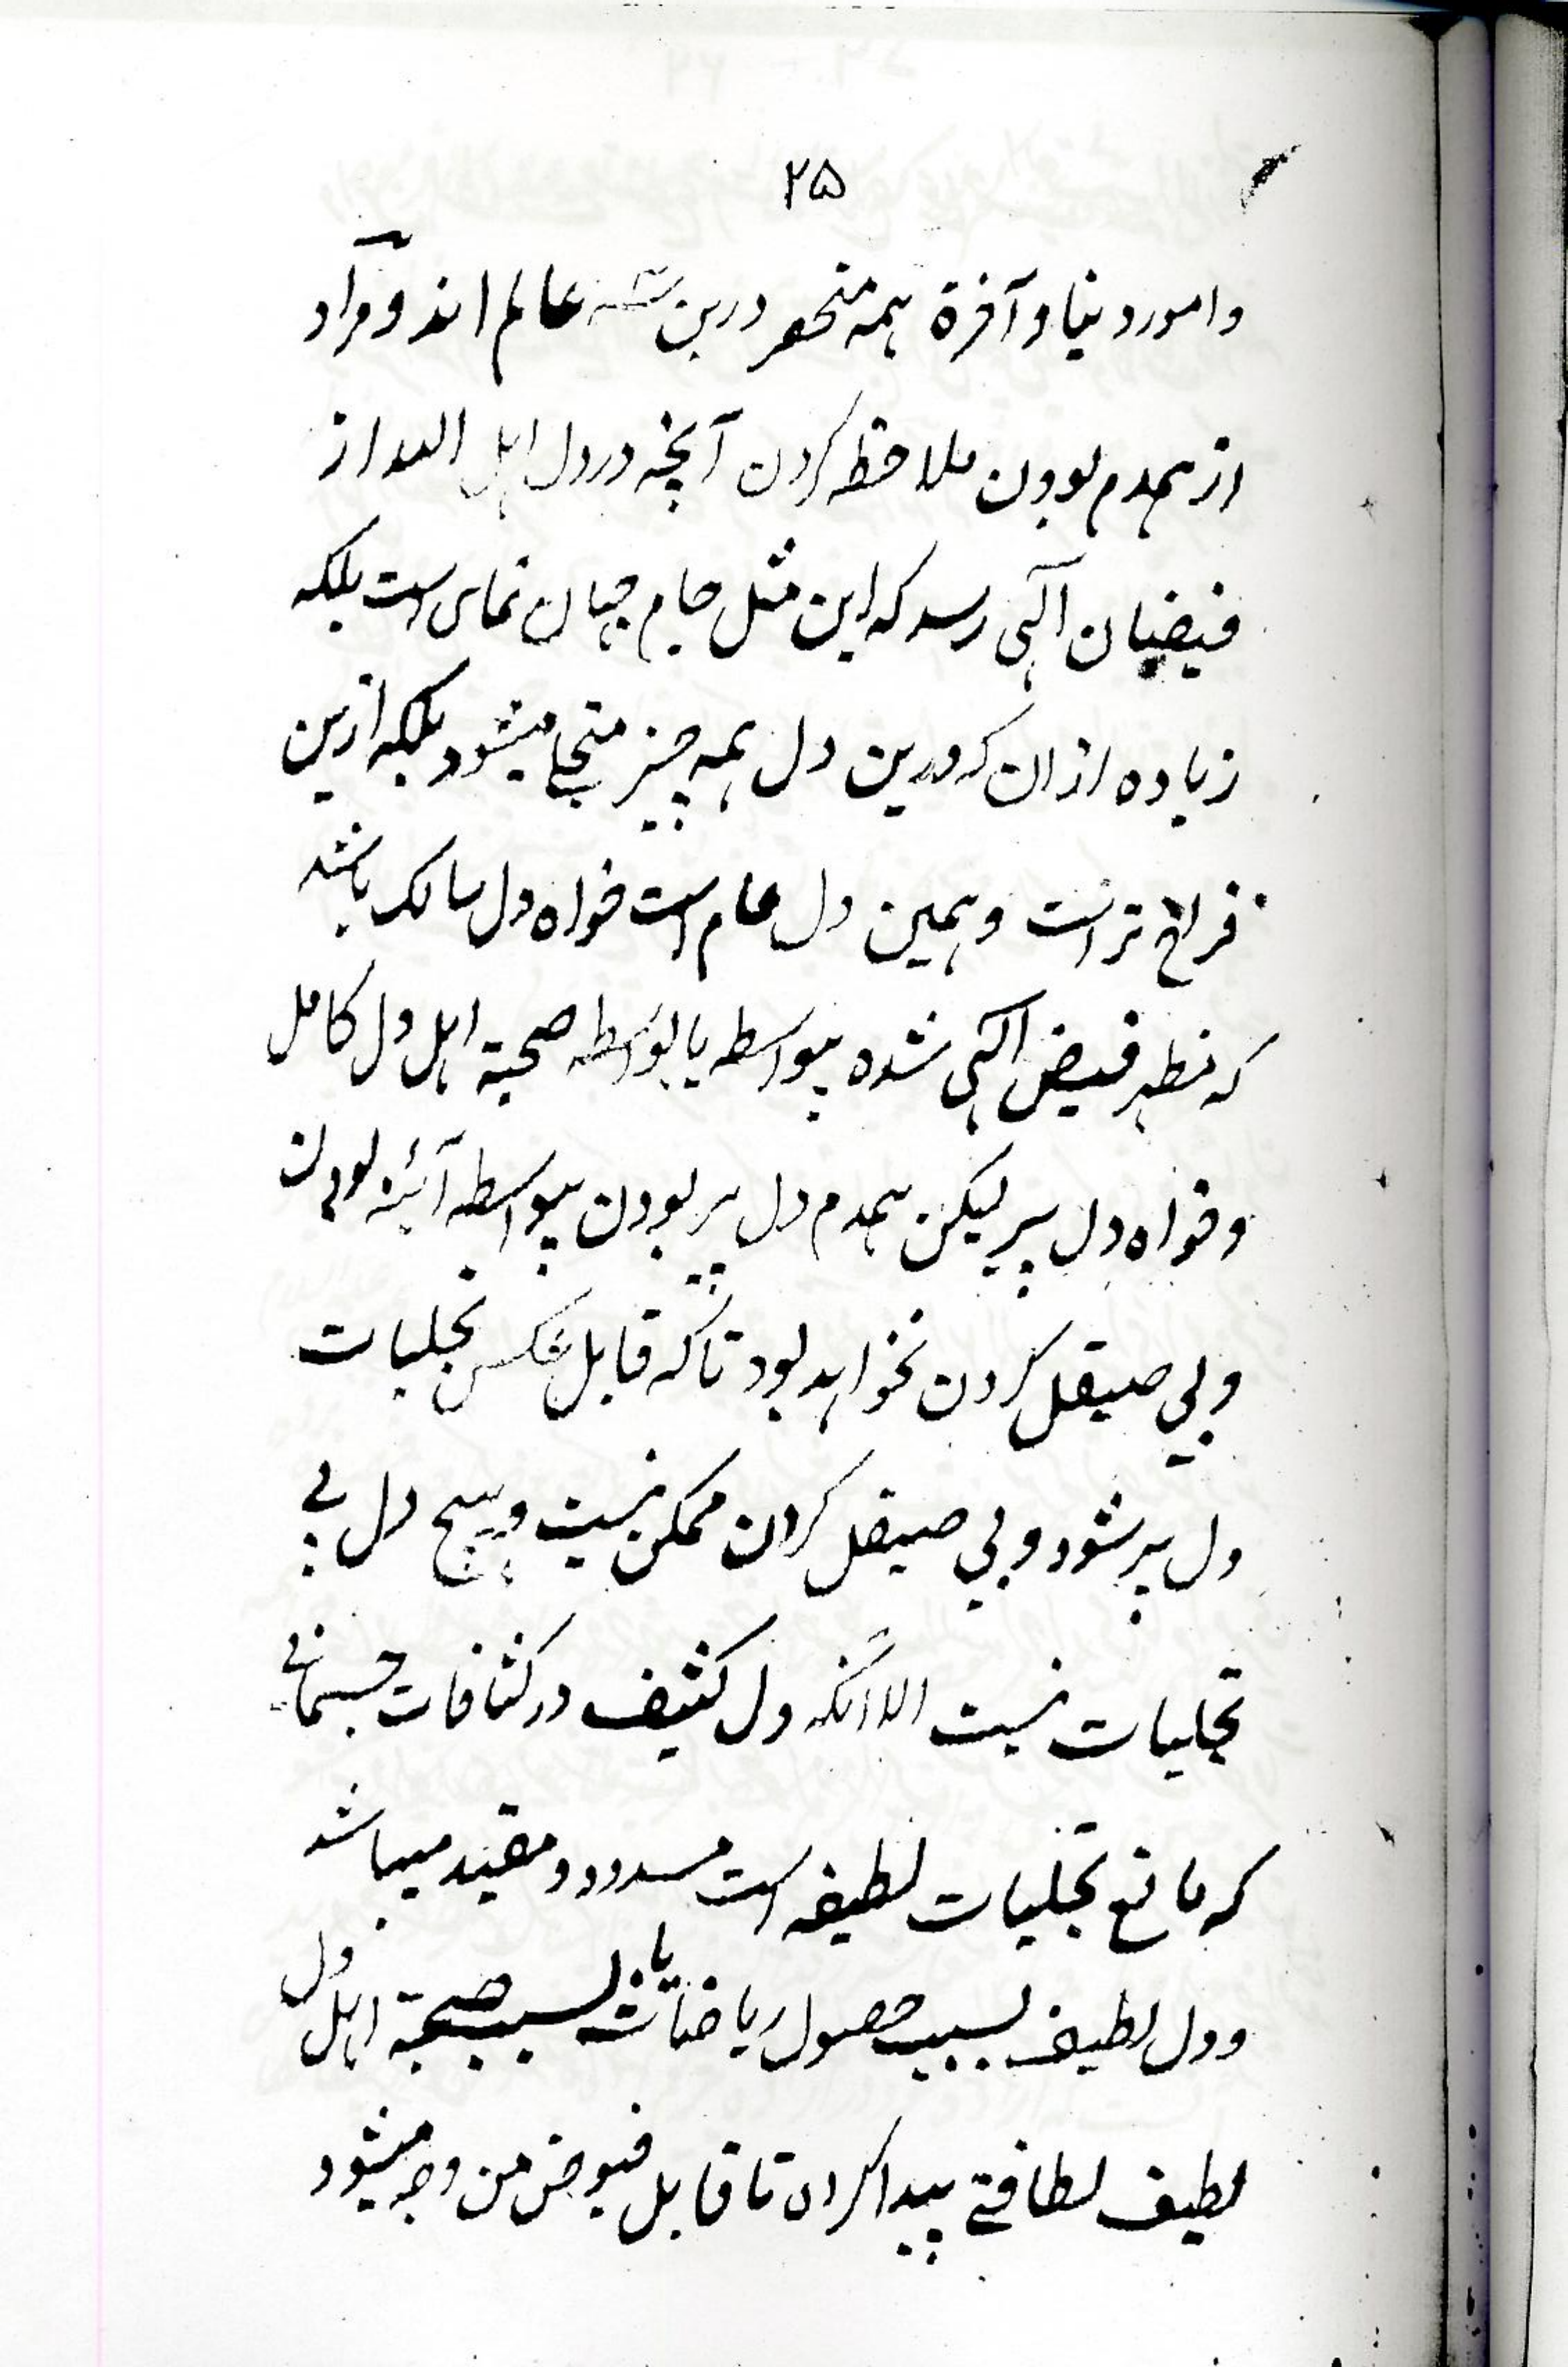 ۲۵
وامور دنیا و آخرة همه منحصر درین سه عالم اند و مراد
از همدم بودن ملاحظه کردن آنچه در دل اهل الله از
فیضان آلهی رسد که این مثل جام جهان نمای است بلکه
زیاده ازان که درین دل همه چیز متجلی میشود بلکه ازین
فراخ تر است و همین دل عام است خواه دل سالک باشد
که مظهر فیض آلهی شده بیواسطه یا بواسطه صحبة اهل دل کامل
وخواه دل پیر لیکن همدم دل پیر بودن بیواسطه آئینه بودن
وبی صیقل کردن نخواهد بود تا که قابل عکس تجلیات
دل پیر شود و بی صیقل کردن ممکن نیست و هیچ دل بی
تجلیات نیست الا آنکه دل کثیف در کثافات جسمانی
که مانع تجلیات لطیفه است مسدود و مقید میباشد
ودل لطیف بسبب حصول ریاضات یا بسبب صحبة اهل دل
لطیف لطافتے پیدا کرده تا قابل فیوض من وجه میشود